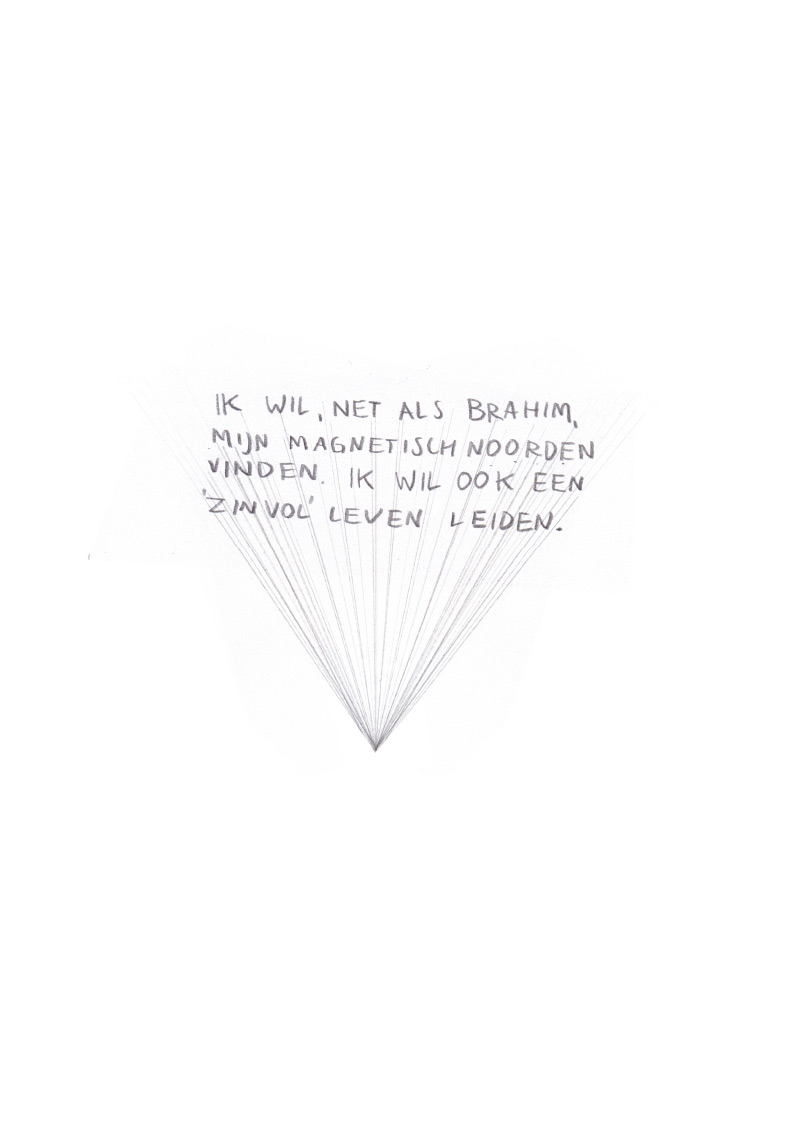 IK WIL, NET ALS BRAHIM,
MIJN MAGNETISCH NOORDEN
VINDEN. IK WIL OOK EEN
'ZINVOL' LEVEN LEIDEN.